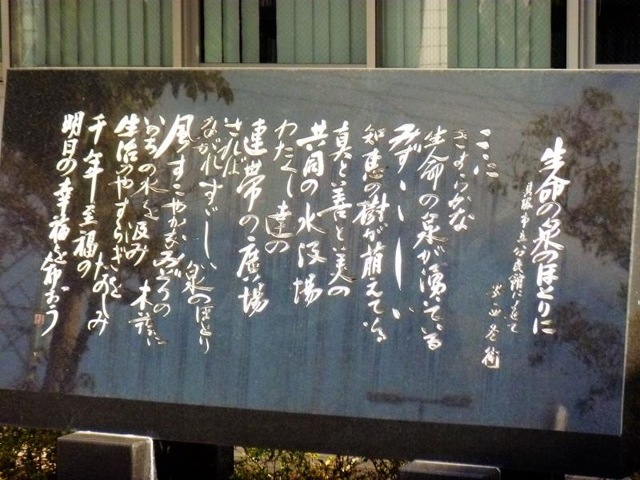 生命の泉のほとりに
貝塚市立公民館によせて
安西冬衛
ここに
きよらかな
生命の泉が湧いている
みずみずしい
知恵の樹が萌えている
真と善と美の
共同の水汲場
わたくし達の
連帯の廣場
されば
ながれすずしい 泉のほとり
風すこやかな みどりの 木蔭に
いのちの水を汲み
生活のやすらぎを
千年至福の たのしみ
明日の幸福を 希おう